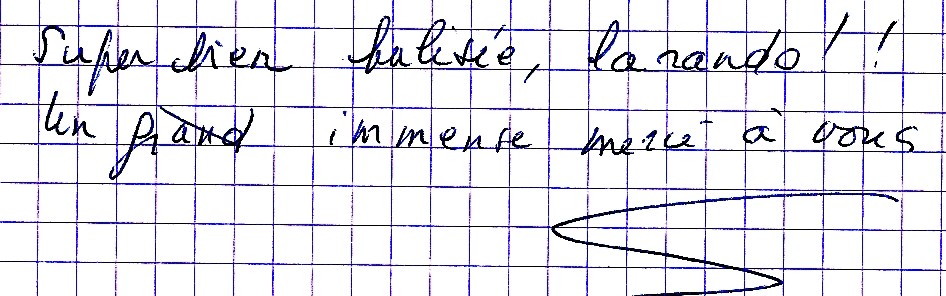 Super bien balisée, la rando!!
Un grand immense merci à vous